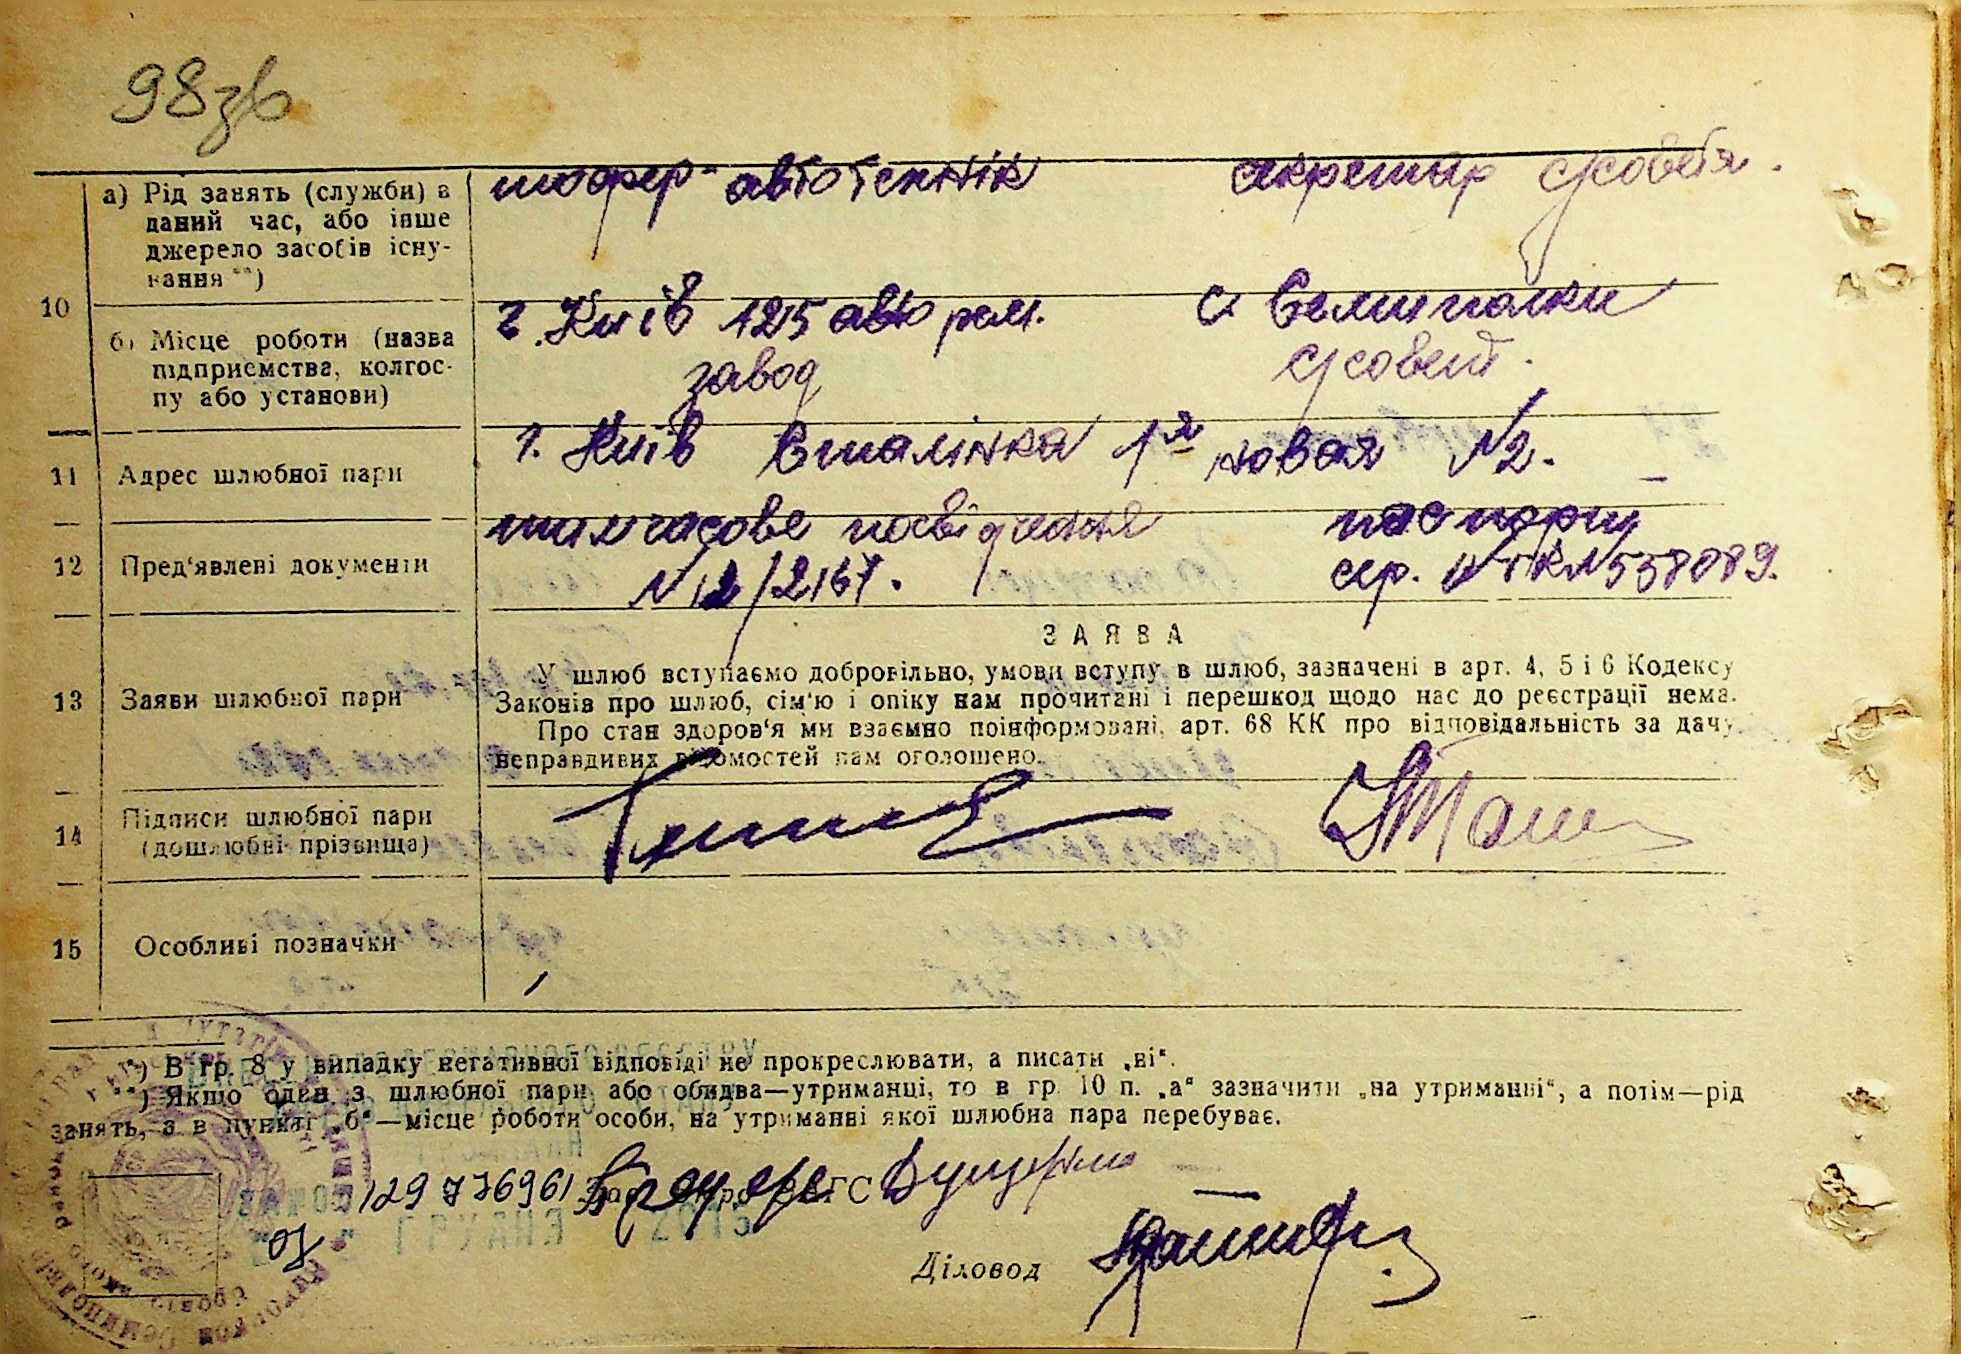 98зв
10
а) Рід занять (служби) в
даний час, або інше
джерело засобів існу-
вання **)
шофер-автотехнік
секретар с/совета.
б) Місце роботи (назва
підприємства, колгос-
пу або установи)
г. Київ 125 авто рем.
завод
с. Семиполки
с/совет.
11
Адрес шлюбної пари
г. Київ Сталінка 1я новая №2. –
12
Пред'явлені документи
тимчасове посвідчення
№ 12/2167.
паспорт
сер.
13
Заяви шлюбної пари
ЗАЯВА
У шлюб вступаємо добровільно, умови вступу в шлюб, зазначені в арт. 4, 5 і 6 Кодексу
Законів про шлюб, сім'ю і опіку нам прочитані і перешкод щодо нас до реєстрації нема.
Про стан здоров'я ми взаємно поінформовані, арт. 68 КК про відповідальність за дачу
неправдивих відомостей нам оголошено.
14
Підписи шлюбної пари
(дошлюбні прізвища)
15
Особливі позначки
*) В гр. 8 у випадку негативної відповіді не прокреслювати, а писати „ні“.
**) Якщо один з шлюбної пари або обидва—утриманці, то в гр. 10 п. „а“ зазначити „на утриманні“, а потім—рід
занять, а в пункті „б“—місце роботи особи, на утриманні якої шлюбна пара перебуває.
Зав. бюро ЗАГС
Діловод